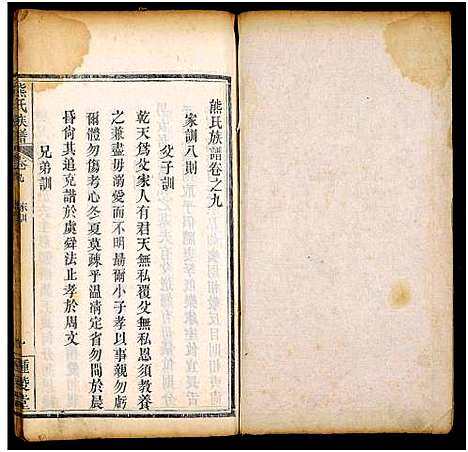 熊氏族譜卷之九
家訓八則
父子訓
乾天爲父家人有君天無私覆父無私恩須教養
之兼盡毋溺愛而不明勗爾小子孝以事親勿虧
爾體勿傷考心冬夏莫疎乎溫凊定省勿間於晨
昏尙其追克諧於虞舜法止孝於周文
兄弟訓
熊氏族譜
卷九
家訓
一